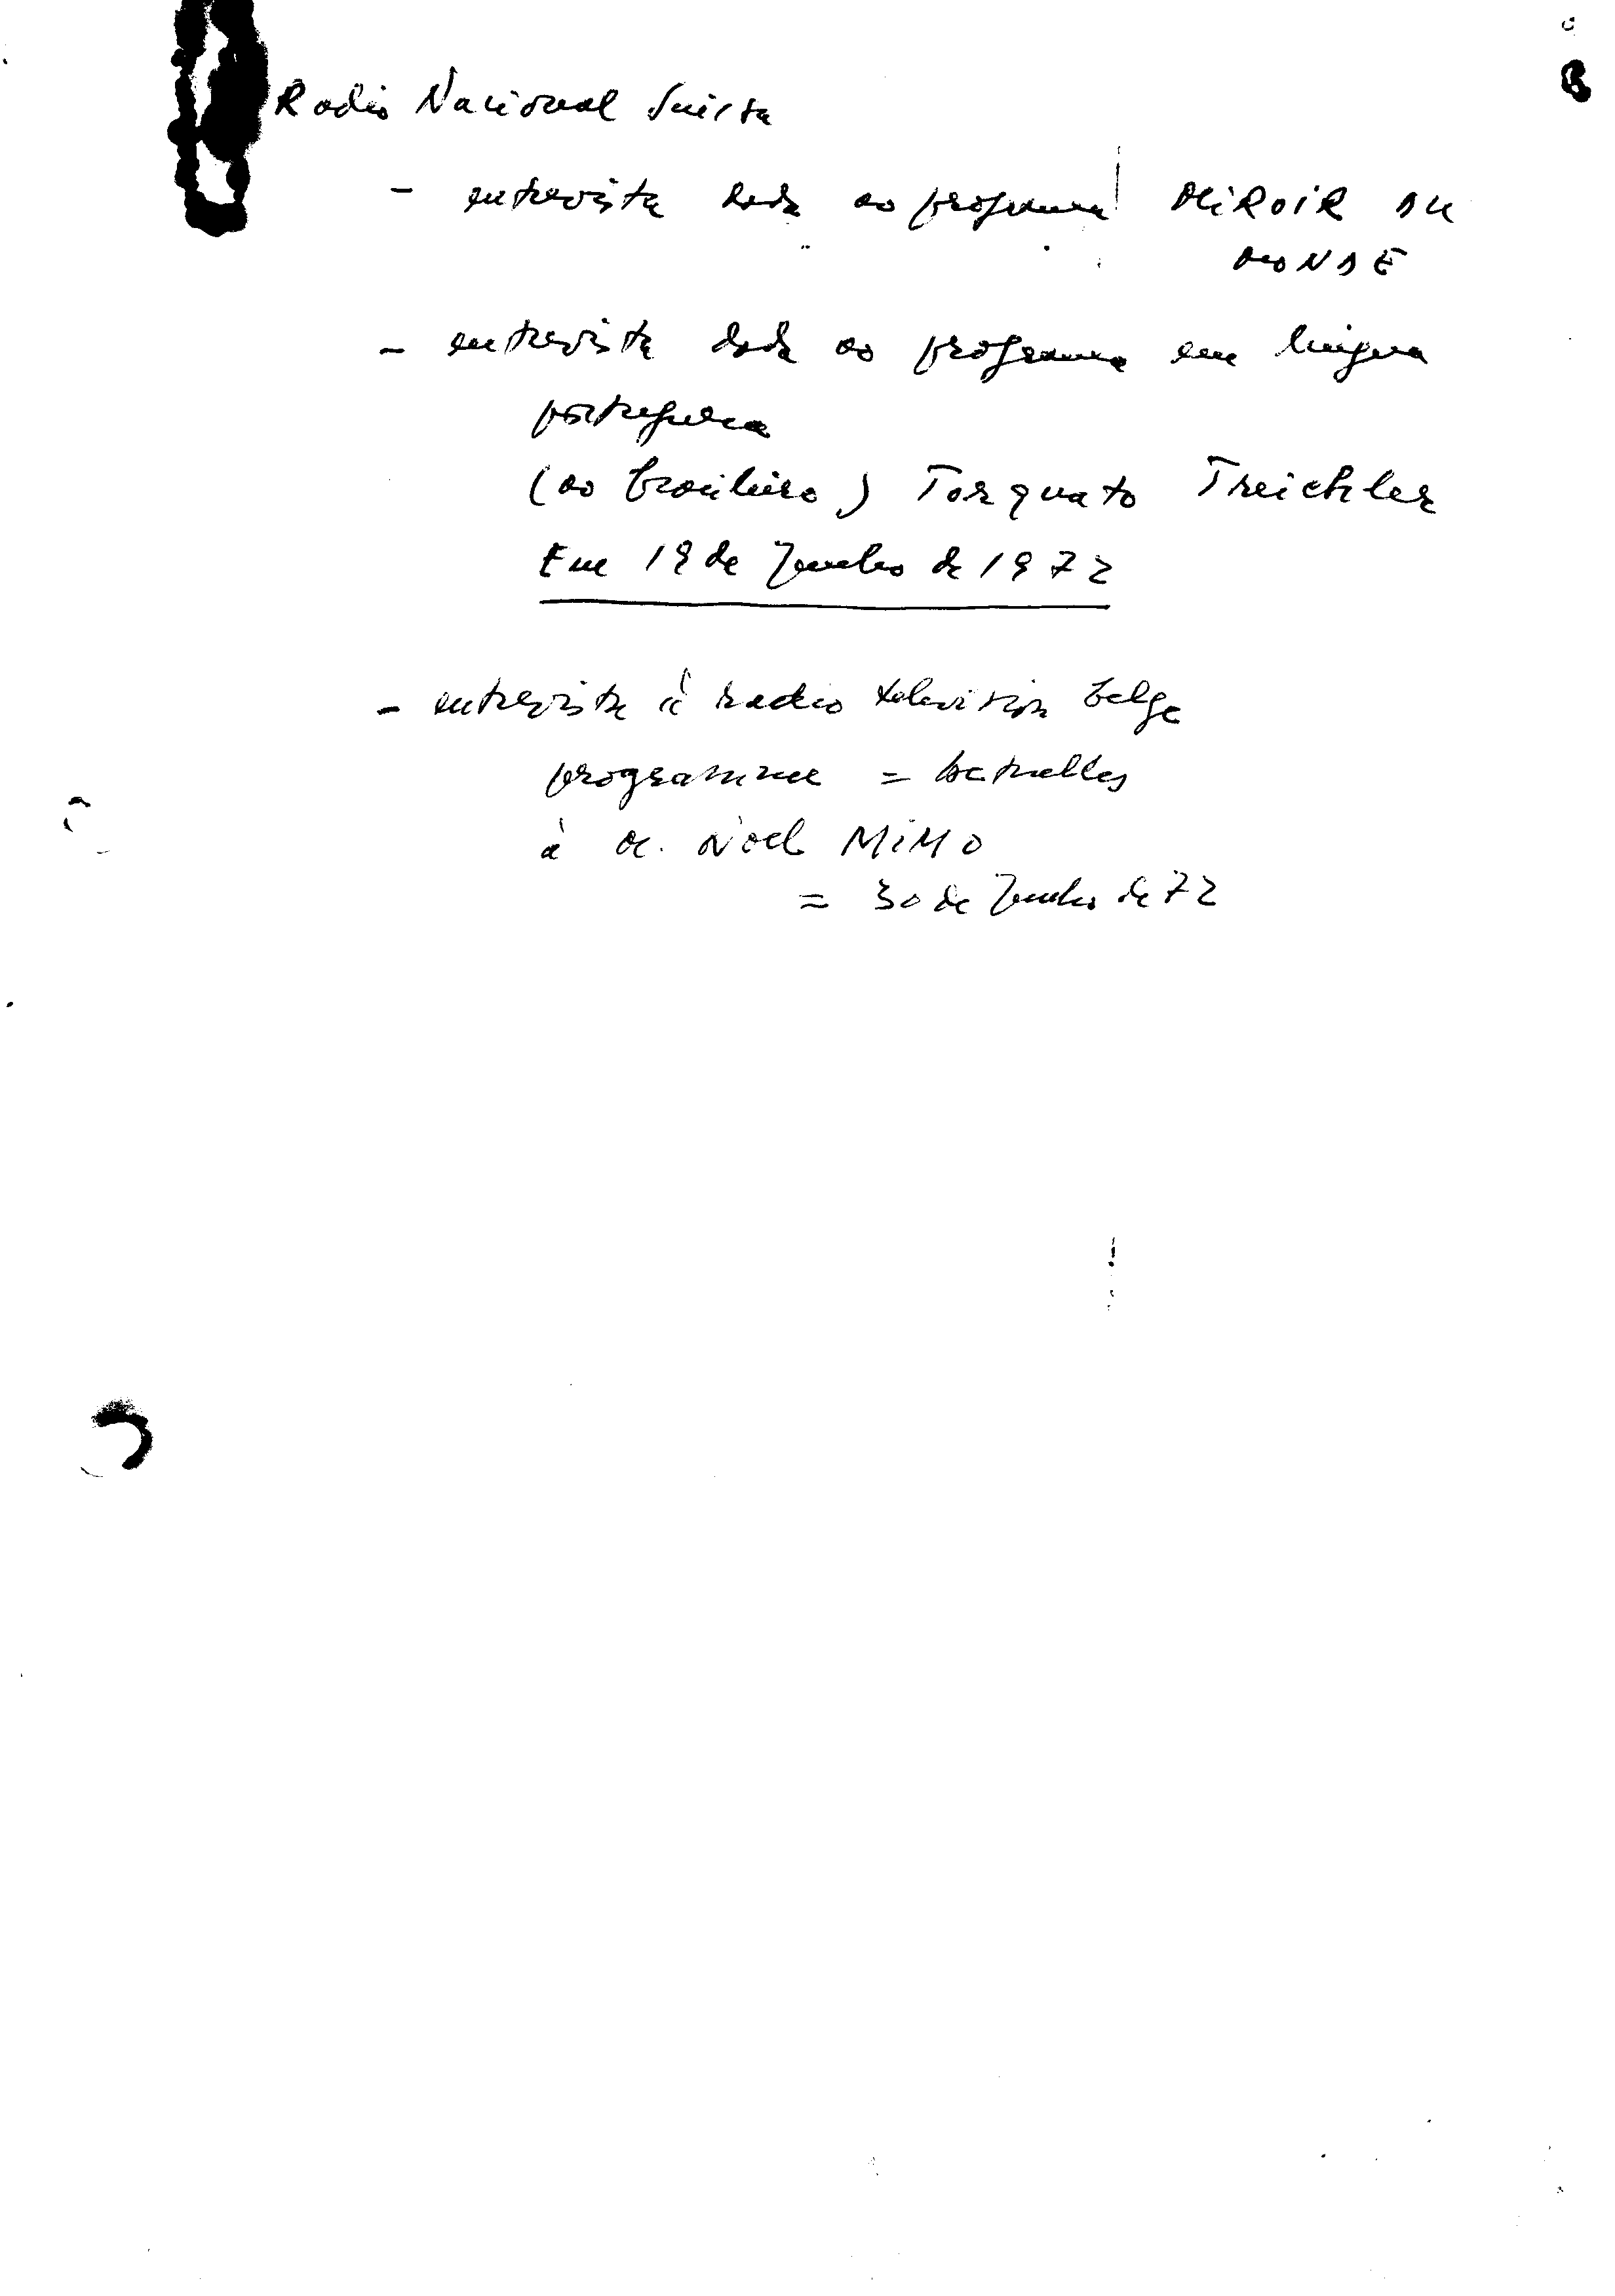 Radio Nacional Suissa
- entrevista dada ao programa MIROIR DU
MONDE
- entrevista dada ao programa em lingua
portuguesa
(ao brasileiro) Torquato Treichler
Em 19 de Junho de 1972
- entrevista à radio television belge
programme = Actuelles
à M. Noel MIMO
= 30 de Junho de 72